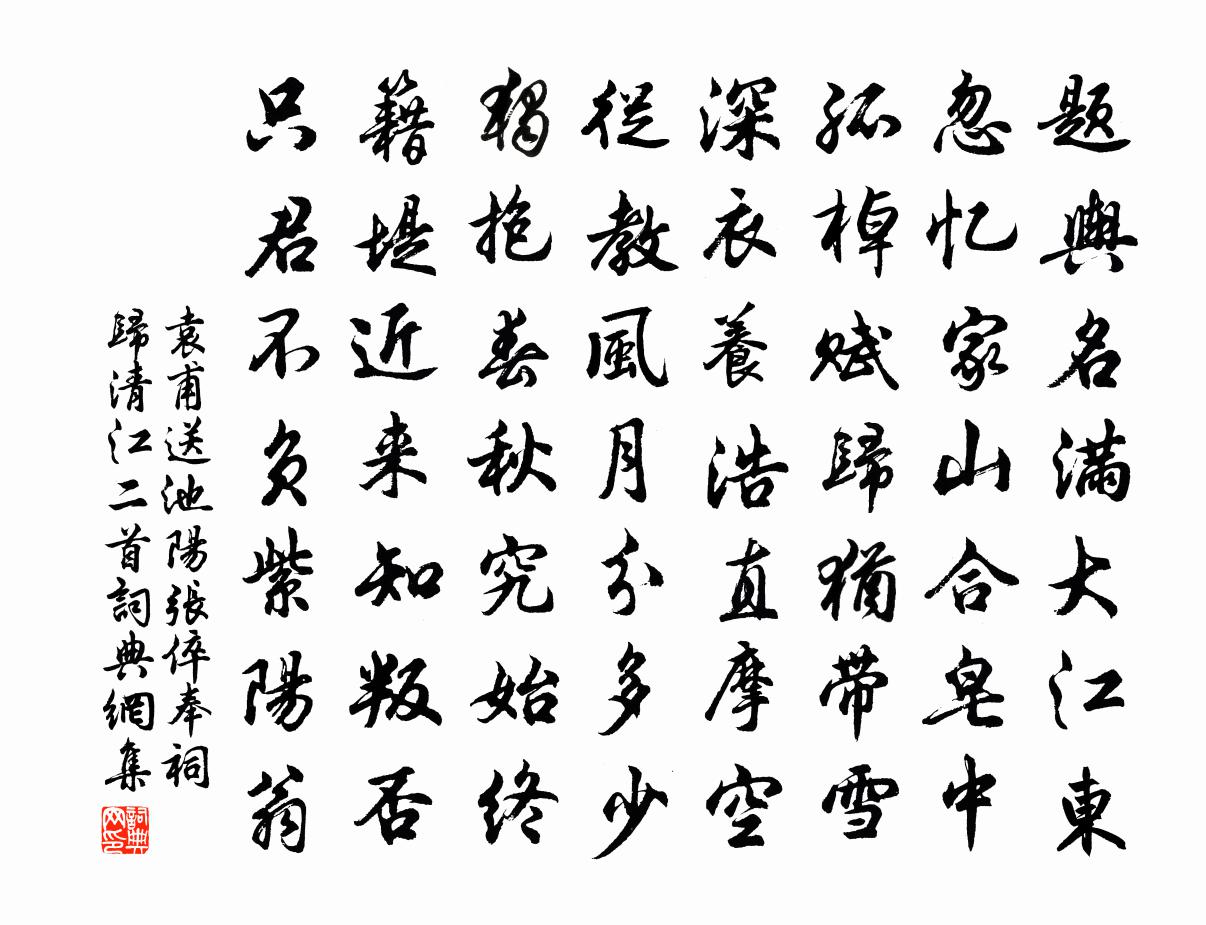 题輿名满大江東
忽忆家山合皂中
孤棹赋歸猶带雪
深衣養浩直摩空
從教風月分多少
獨抱春秋究始终
籍堤近来知叛否
只君不负紫陽翁
袁甫送池陽張倅奉祠
歸清江二首詞典網集
詞典网印